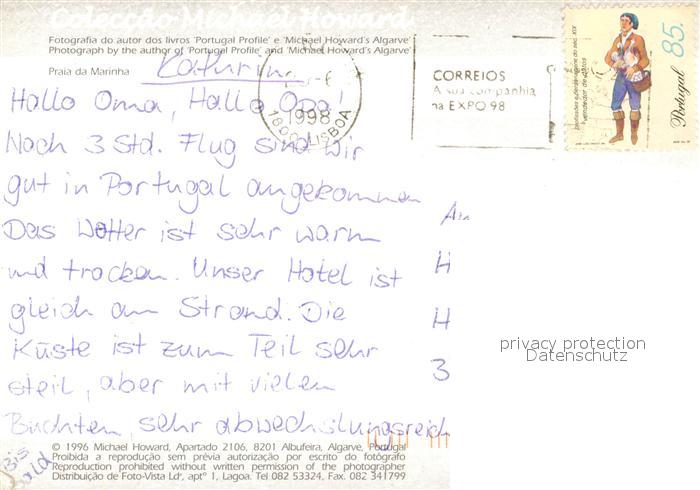 Colecção Michael Howard
Fotografia do autor dos livros 'Portugal Profile' e 'Michael Howard's Algarve'
Photograph by the author of 'Portugal Profile' and 'Michael Howard's Algarve'
Praia da Marinha
Kathrin
1998
1800 LISBOA
CORREIOS
A sua companhia
na EXPO 98
85.
Portugal
Hallo Oma, Hallo Opa!
Nach 3 Std. Flug sind wir
gut in Portugal angekommen
Das Wetter ist sehr warm
und trocken. Unser Hotel ist
gleich am Strand. Die
Küste ist zum Teil sehr
steil, aber mit vielen
Buchten, sehr abwechslungsreich
Bis
bald
An
H
H
3
privacy protection
Datenschutz
© 1996 Michael Howard, Apartado 2106, 8201 Albufeira, Algarve, Portugal
Proibida a reprodução sem prévia autorização por escrito do fotógrafo
Reproduction prohibited without written permission of the photographer
Distribuição de Foto-Vista Lda, aptº 1, Lagoa. Tel 082 53324, Fax. 082 341799